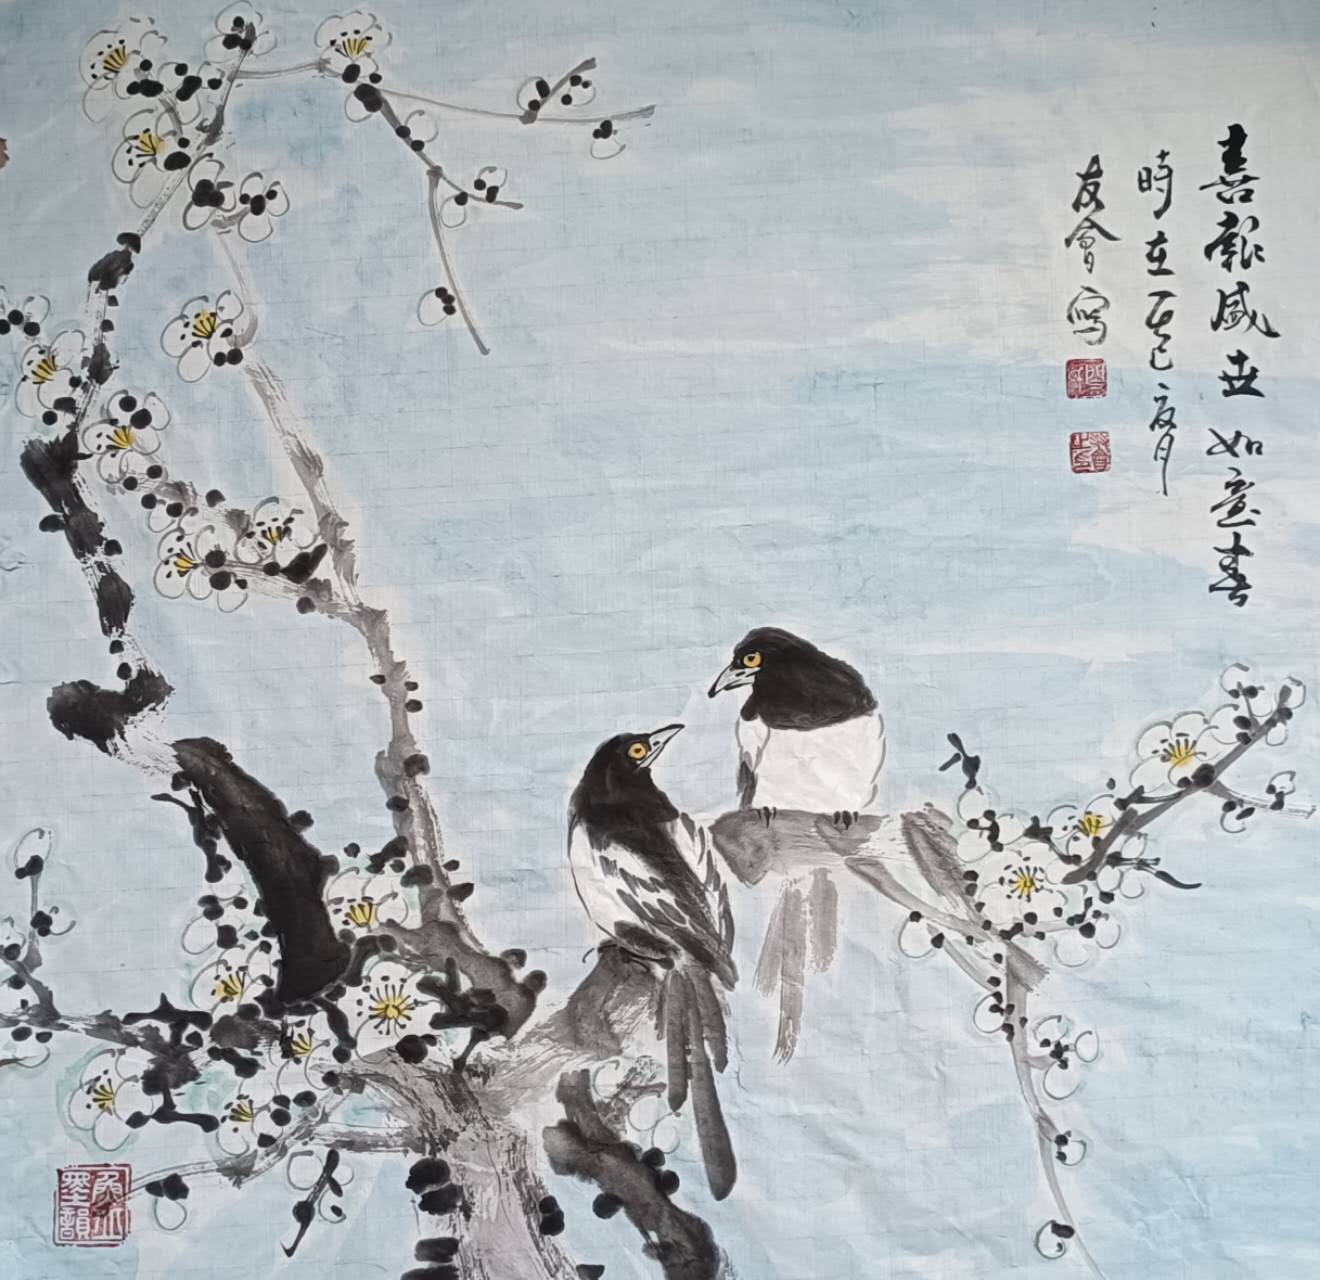 喜報盛世如意春
時在乙巳夏月
友會寫